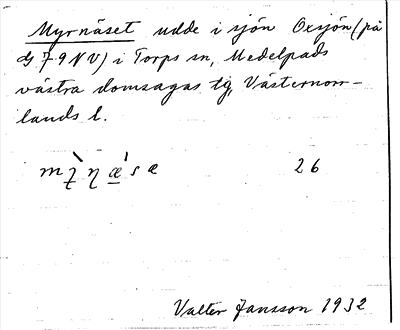 Myrnäset udde i sjön Oxsjön (på
G 79 NV) i Torps sn, Medelpads
västra domsagas tg, Västernorr-
lands l.
26
Valter Jansson 1932